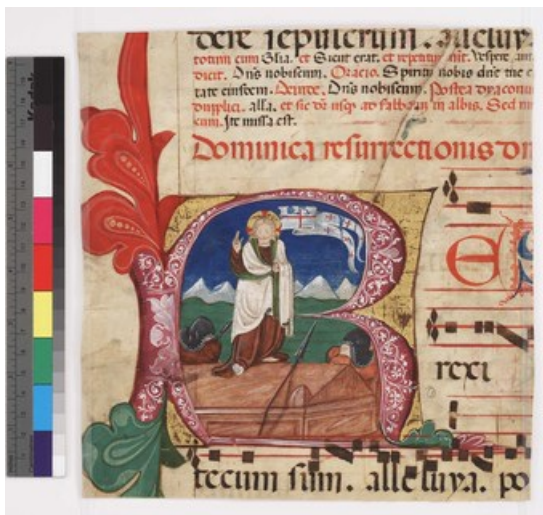 dere sepulcrum. alleluya.
totum cum Glia. et Sicut erat. et repetitur añt. Vespere aut
dicit. Dñs nobiscum. Oracio. Spiritũ nobis dñe tue c
tate eiusdem. Deinde. Dñs nobiscum. Postea dyaconus
duplici. alla. et sic dr̃ usq; ad sabbatũ in albis. Sed
cum. Ite missa est.
Dominica resurrectionis
R E S
rexi
tecum sum. alleluya. po